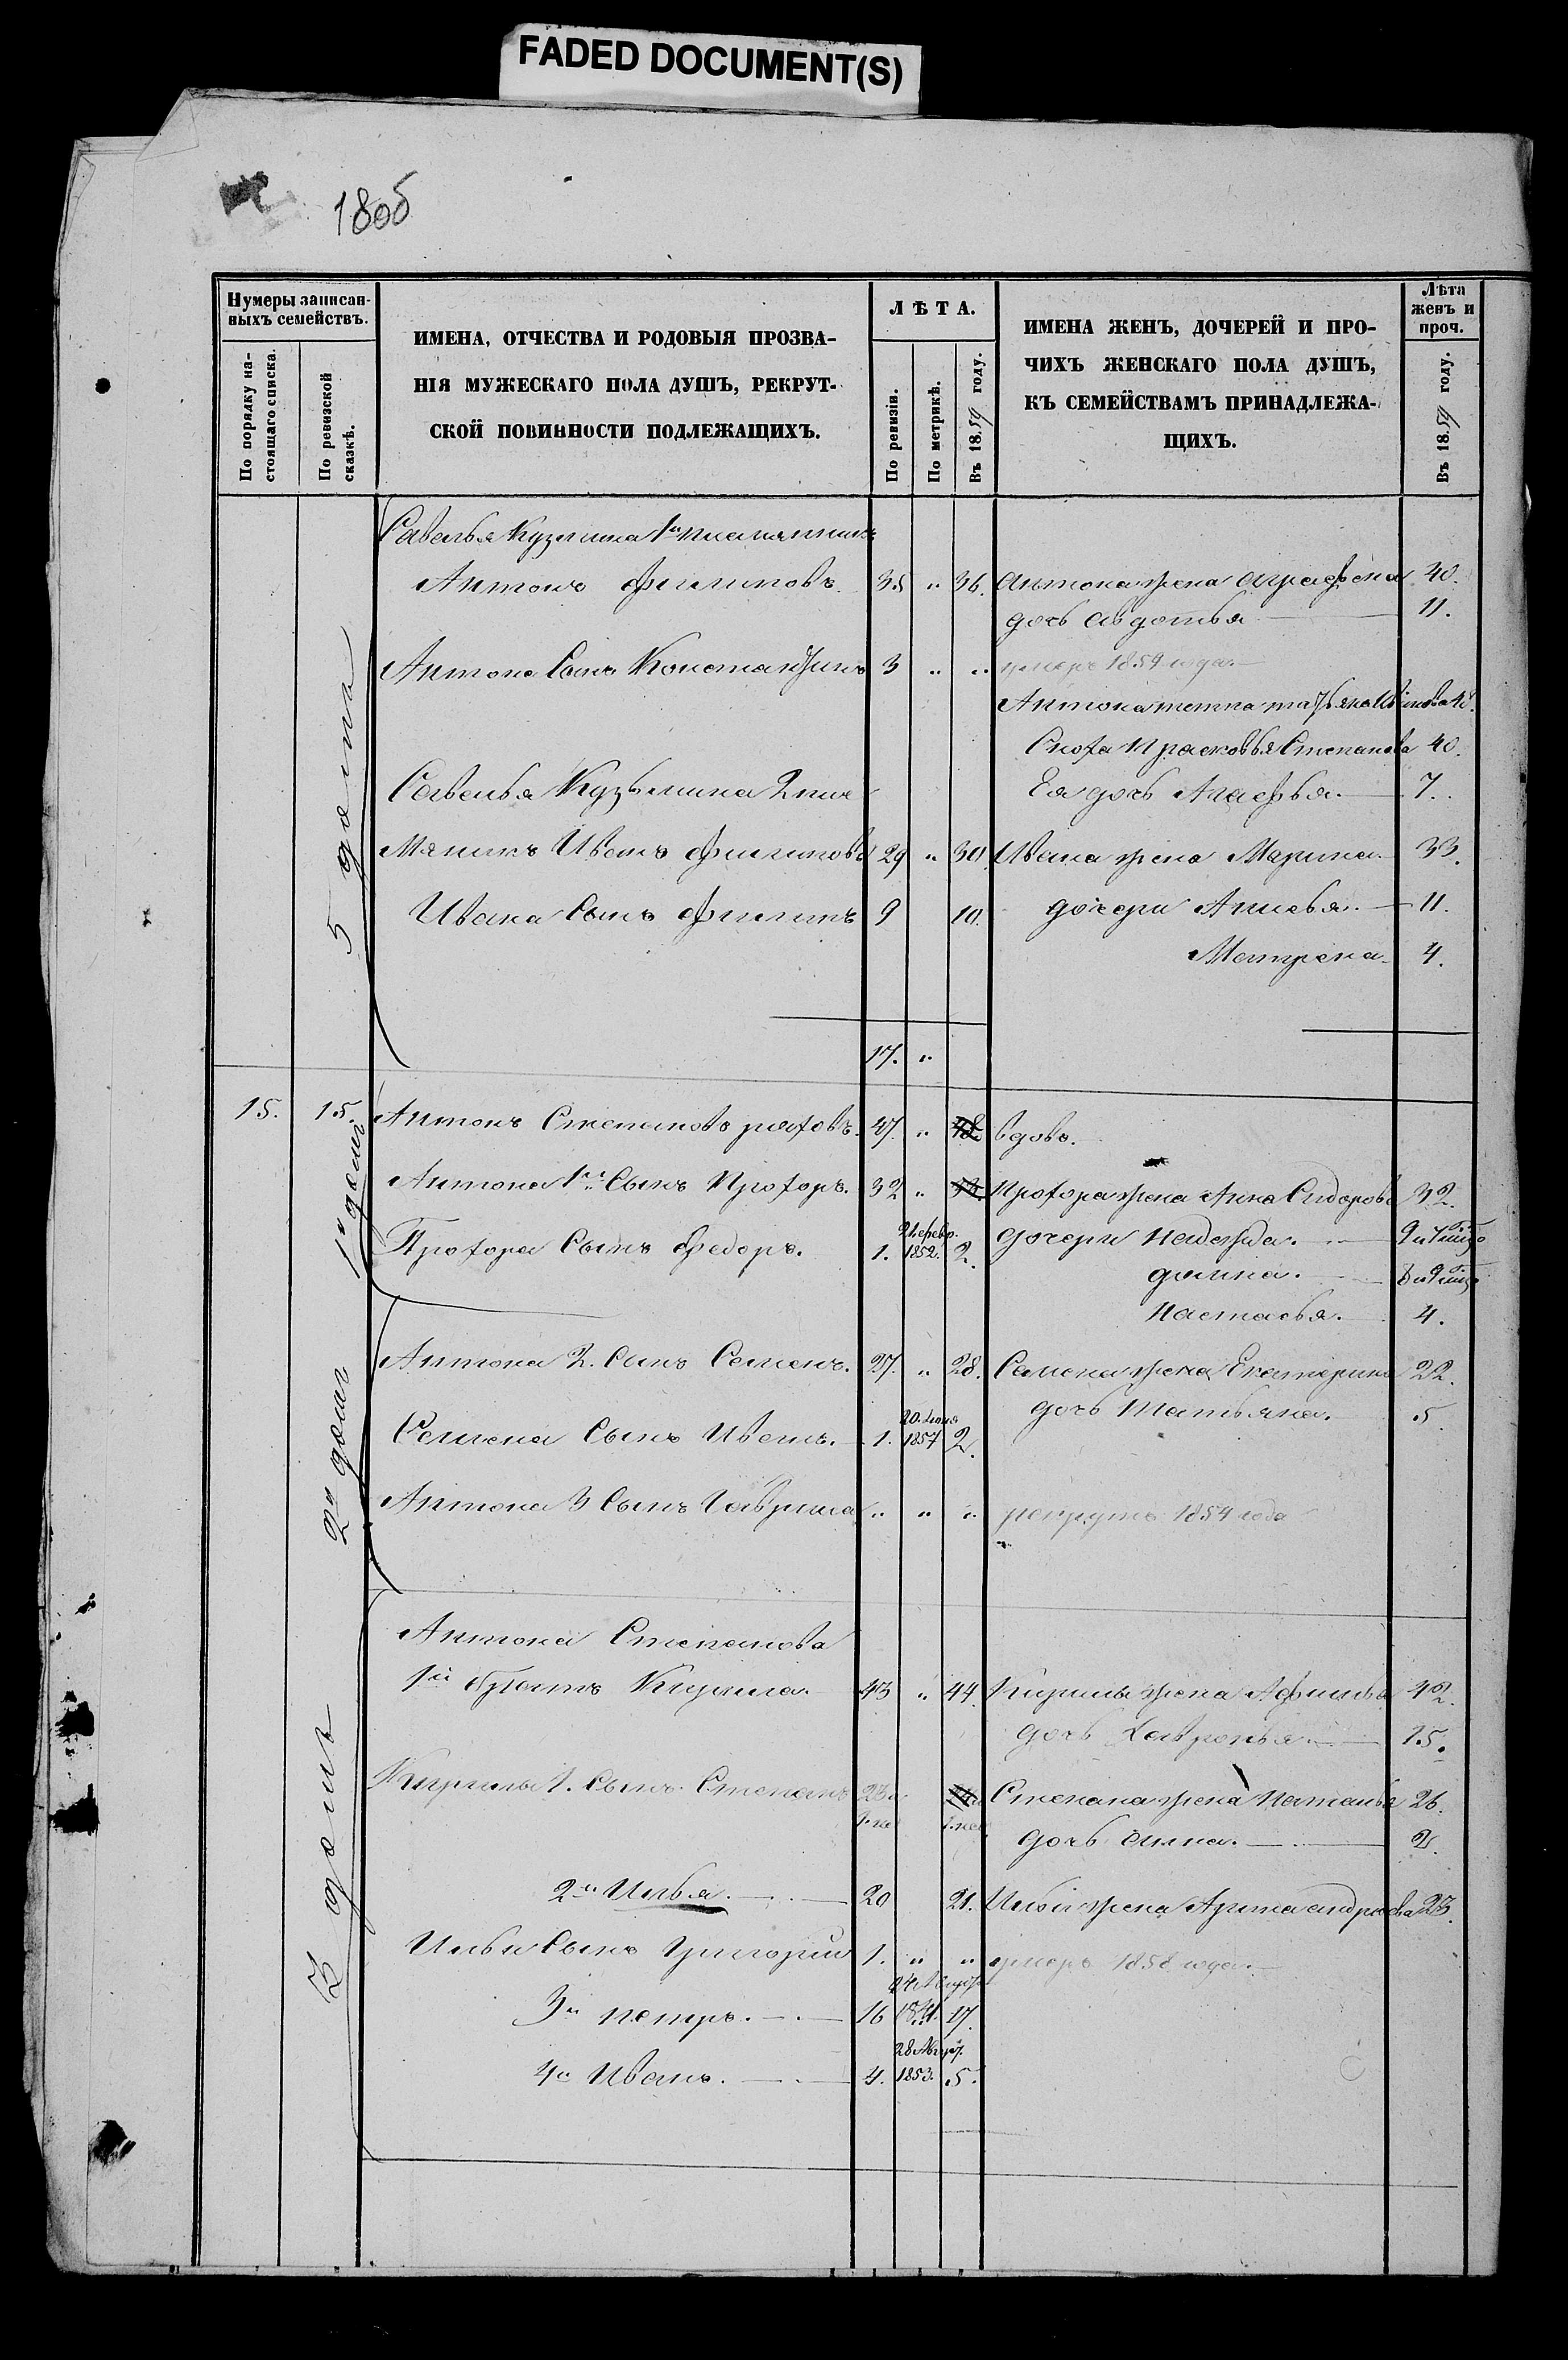 FADED DOCUMENT(S)
1806
Нумеры записан-
ныхъ семействъ.
По порядку на-
стоящаго списка.
По ревизской
сказкѣ.
ИМЕНА, ОТЧЕСТВА И РОДОВЫЯ ПРОЗВА-
НІЯ МУЖЕСКАГО ПОЛА ДУШЪ, РЕКРУТ-
СКОЙ ПОВИННОСТИ ПОДЛЕЖАЩИХЪ.
ЛѢТА.
По ревизіи.
По метрикѣ.
Въ 1859 году.
ИМЕНА ЖЕНЪ, ДОЧЕРЕЙ И ПРО-
ЧИХЪ ЖЕНСКАГО ПОЛА ДУШЪ,
КЪ СЕМЕЙСТВАМЪ ПРИНАДЛЕЖА-
ЩИХЪ.
Лѣта
женъ и
проч.
Въ 1859 году.
5 дома
Савелья Кузмина 1й племянникъ
Антонъ Филиповъ 35 " 36. Антона жена Аграфена 40.
дочь Авдотья 11.
Антона Сынъ Константинъ 3 " " умеръ 1859 года
Антона тетка
Сноха Прасковья Степанова 40.
Савелья Кузьмина 2 пле
Ея дочь Агафья. 7.
мяникъ Иванъ Филиповъ 29 " 30. Ивана жена Марина 33.
Ивана Сынъ Филипъ 9 10. дочери Анисья. 11.
Матрена 4.
17. "
15. 15. Антонъ Степановъ 47. " 48 вдовъ.
1й домъ
Антона 1й Сынъ Прохоръ. 32 " 33 Прохора жена Анна Сидорова 32.
Прохора Сынъ Федоръ. 1. 21. февр. 1852. 2. дочери Надежда. 9
домна. 8
Настасья. 4.
2й домъ
Антона 2. Сынъ Семенъ. 27. " 28. Семена жена Екатерина 22.
дочь Татьяна. 5
Семена Сынъ Иванъ. 1. 20. 1857 2.
Антона 3 Сынъ Гаврила " " " рекрутъ 1854 года
3 домъ
Антона Степанова
1й братъ Кирила. 43 " 44. Кирилы жена 42.
дочь Хавронья 15.
Кирилы 1. Сынъ Степанъ 23 24 Степана жена Наталья 26.
дочь 2.
2й Илья. 20 21. Ильи жена Арина Андреева 23.
Ильи Сынъ Григорій 1. " " умеръ 1858 года.
3й петръ. 16 1841. 17.
4й Иванъ. 4. 28 Август. 1853. 5.